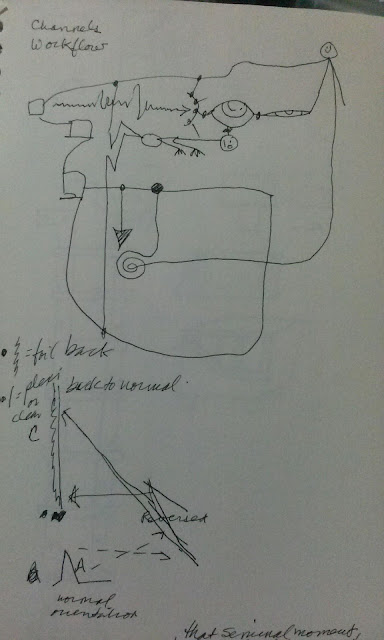 Channels
Workflow
= foil back
= plexi back to normal.
or
clear
C
Reversed
A
normal
orientation
, that seminal moment,